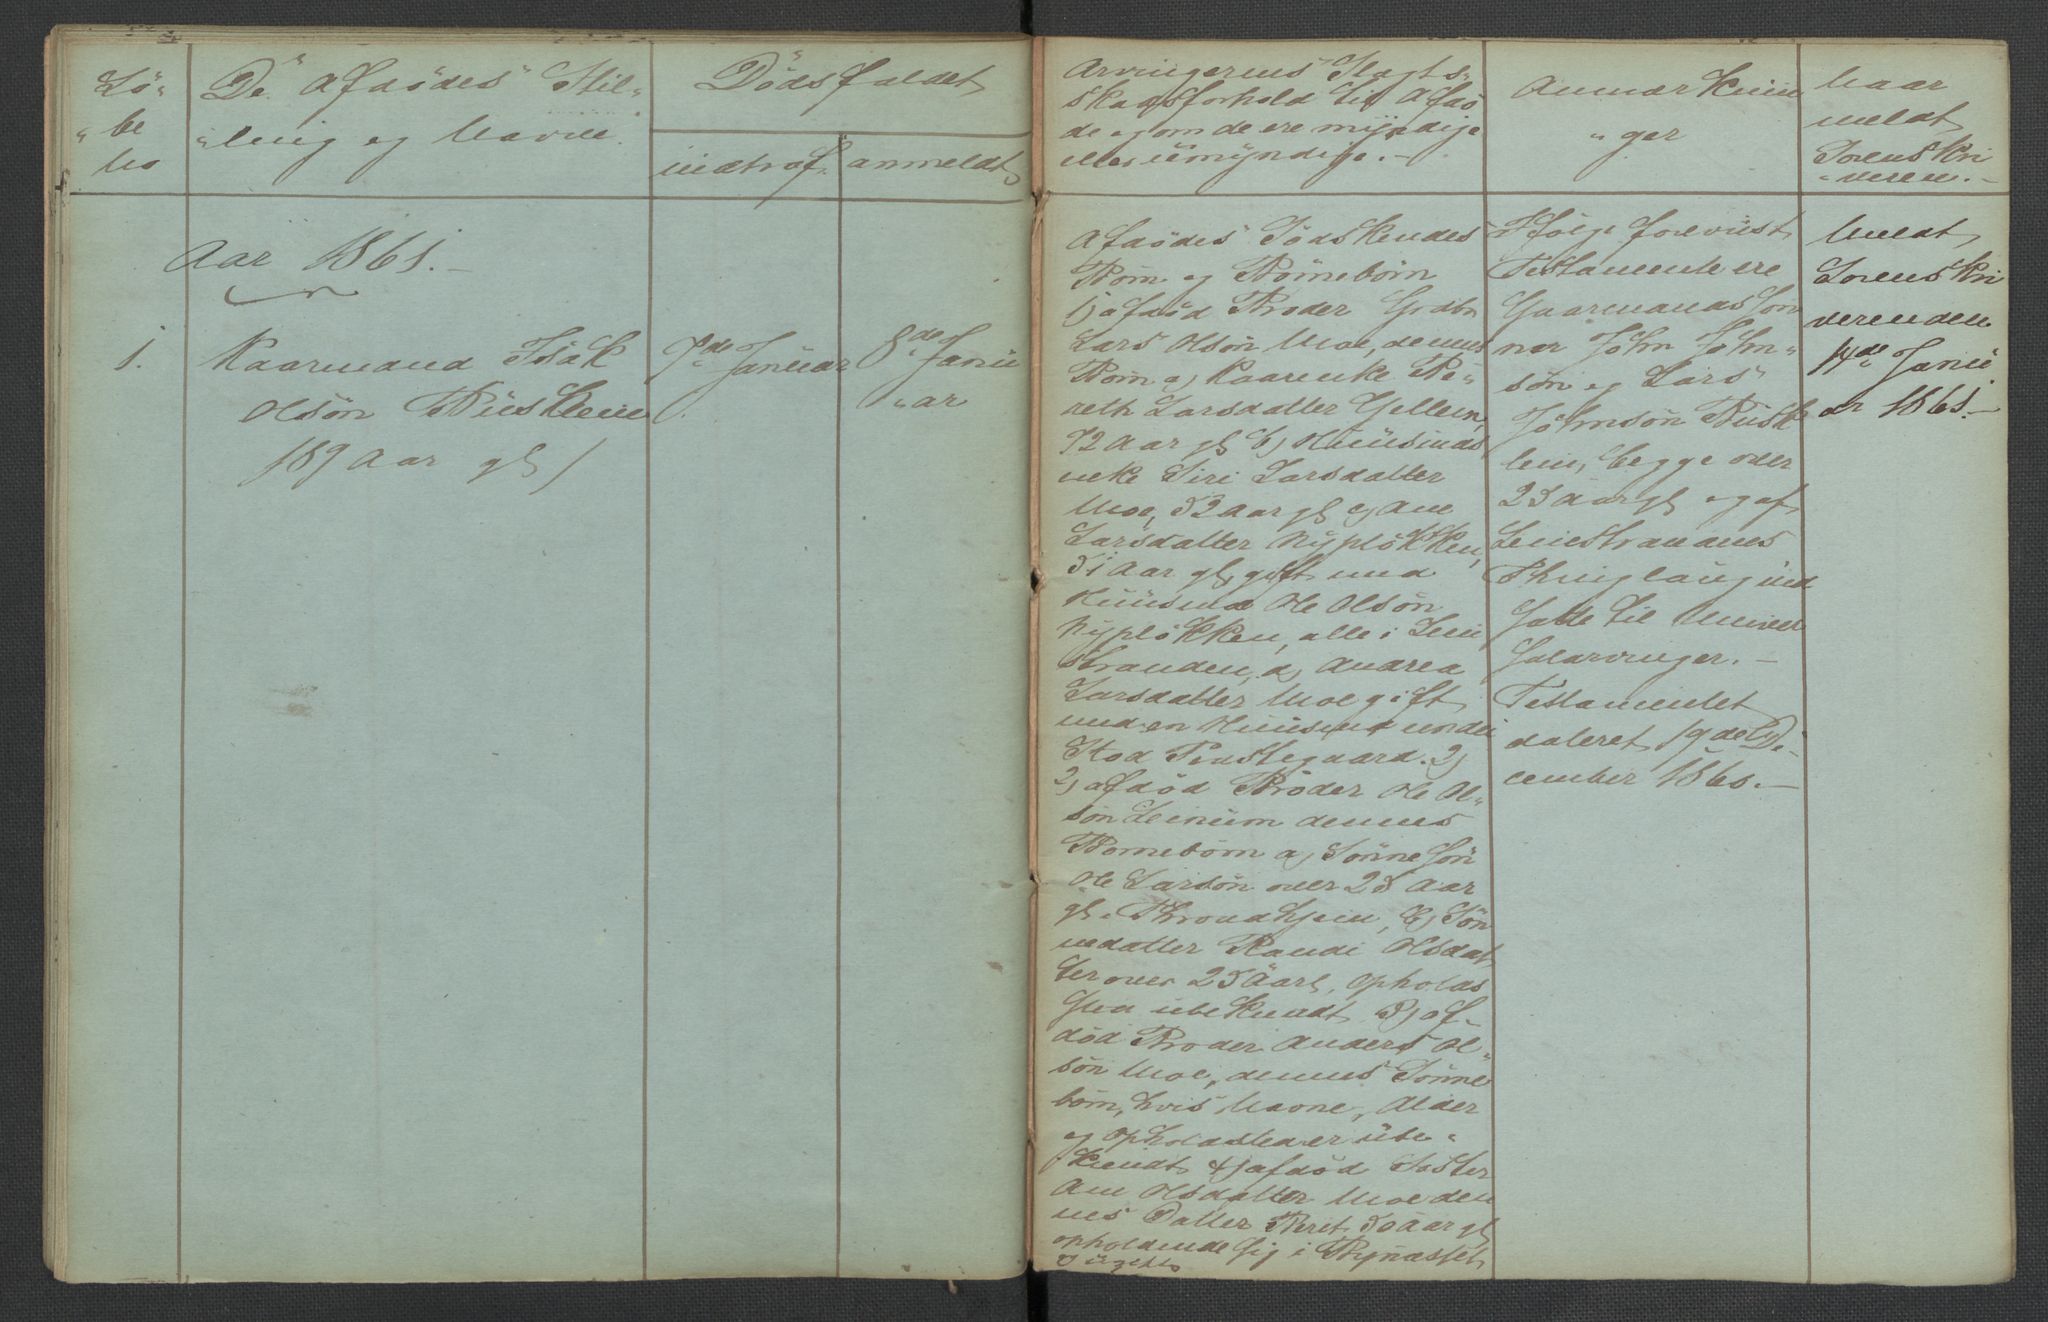 Lö-
"be
No
De Afdödes Stil-
"ling og Navne.
Dödsfaldet
indtraf.
anmeldt
Arvingernes Slægts-
skabsforhold til Afdö
de og om de ere myndige
eller umyndige.-
Anmærknin
"ger
Naar
meldt
Sorenskri
"veren.-
Aar 1861.-
1.
Kaarmand Isak
Olsön Busklein
/89 Aar gl/
7de Januar
8de Janu
"ar
Afdödes Södskendes
Börn og Börnebörn
1) afdöd Broder Gdbr
Lars Olsön Moe, dennes
Börn a) Kaarenke Be-
reth Larsdatter
72 Aar gl b) Huusmds
enke Siri Larsdatter
Moe, 52 Aar gl c) Ane
Larsdatter Nyplökken,
51 Aar gl, gift med
Huusmd Ole Olsön
Nyplökken, alle i Lein
stranden, d) Andrea
Larsdatter Moe gift
med en Huusmd under
Stod Præstegaard. 2)
2) afdöd Broder Ole Ol-
sön Leinum dennes
Börnebörn a) Sönnesön
Ole Larsön over 25 Aar
gl. Throndhjem, b) Sön
nedatter Randi Olsdat
ter over 25 Aar gl, Opholds
sted ubekjendt 3) af-
död Broder Anders Ol-
sön Moe, dennes Sönne
börn, hvis Navne, Alder
og Opholdssteder ube-
kjendt 4) afdöd Söster
Ane Olsdatter Moe den
nes Datter Beret 50 Aar gl
opholdende sig i Bynæsset
ugift
Ifölge forevist
Testamente ere
Gaarmands Sön
ner John John-
sön og Lars
Johnsön Busk
lein, begge over
25 Aar gl og af
Leinstrandens
Thinglaug ind
satte til Univer
salarvinger.-
Testamentet
dateret 19de De-
cember 1860.-
Meldt
Sorenskri
veren den
14de Janu
ar 1861.-